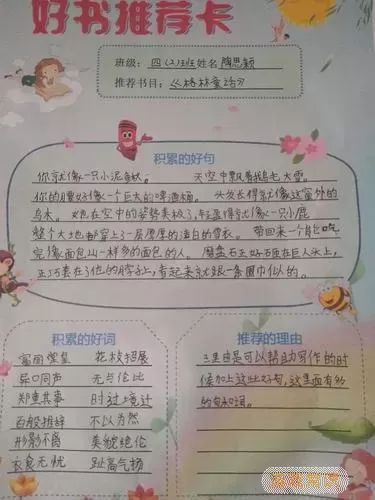 好书推荐卡
班级：四(2)班姓名 陶思颖
推荐书目：格林童话
积累的好句
你就像一只小泥鳅。 天空中飘着鹅毛大雪。
你的腰好像一个巨大的啤酒桶。 头发长得就像这窗外的
乌木。 她在空中的姿势美极了,轻盈得就像一只小鹿
整个大地都穿上了一层厚厚的洁白的雪衣。 带回来一个能吃
完像面包山一样多的面包的人。 磨盘石正好砸在巨人头上,
正巧套在了他的脖子上,看起来就跟一条围巾似的。
积累的好词
富丽堂皇 花枝招展
异口同声 无与伦比
知更其事 时过境迁
百般推辞 不以为然
形影不离 美貌绝伦
衣食无忧 趾高气扬
推荐的理由
理由是可以帮助写作的时
候加上这些好句,这里面有好
的句和词。